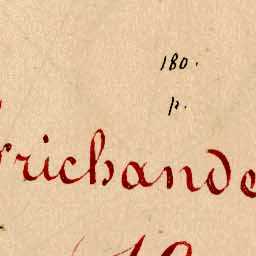 180.
p.
richande